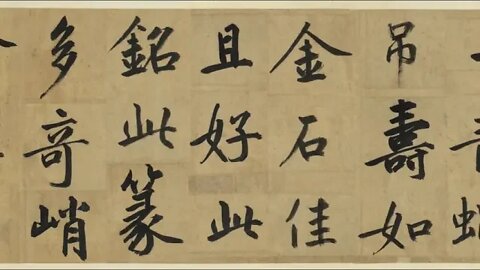 吊壽如
金石佳
且好此
銘此篆
多竒峭